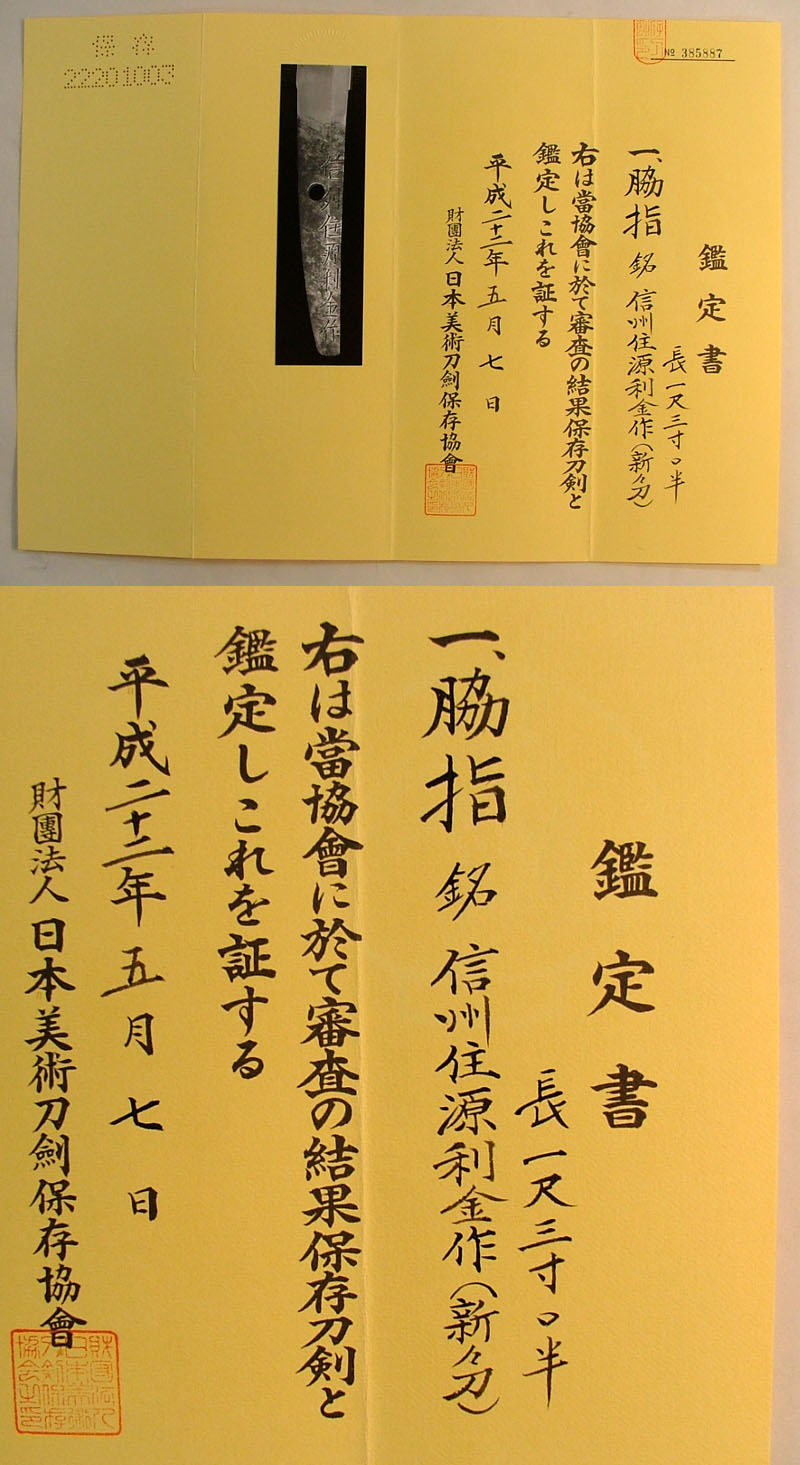 保存
22201003
№ 385887
鑑定書
一、脇指 銘 信州住源利金作(新々刀)
長一尺三寸〇半
右は當協會に於て審査の結果保存刀剣と
鑑定しこれを証する
平成二十二年五月七日
財團法人日本美術刀劍保存協會
信州住源利金作
鑑定書
長一尺三寸〇半
一、脇指 銘 信州住源利金作(新々刀)
右は當協會に於て審査の結果保存刀剣と
鑑定しこれを証する
平成二十二年五月七日
財團法人日本美術刀劍保存協會